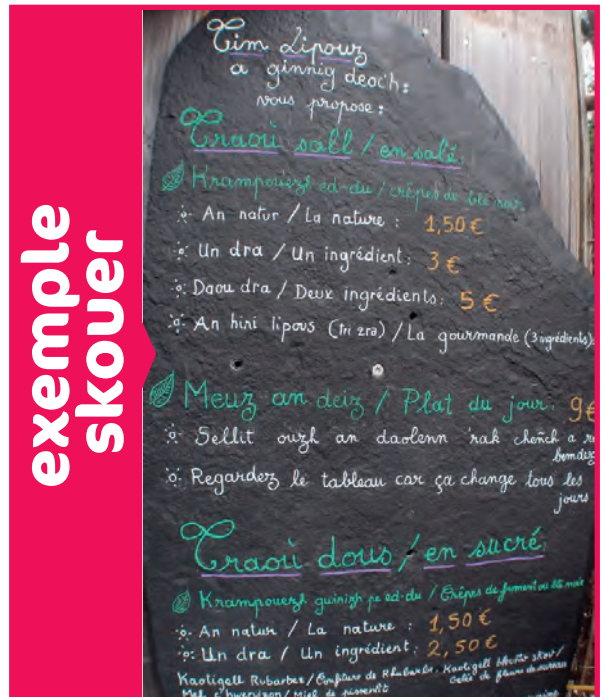 exemple
skouer
Tim Lipouz
a ginnig deoc'h:
vous propose:
Traoù sall / en salé:
Krampouezh ed-du / crêpes de blé noir
An natur / La nature : 1,50 €
Un dra / Un ingrédient: 3 €
Daou dra / Deux ingrédients: 5 €
An hini lipous (tri zra) / La gourmande (3 ingrédients):
Meuz an deiz / Plat du jour: 9€
Sellit ouzh an daolenn 'rak cheñch a
bemdez
Regardez le tableau car ça change tous les
jours
Traoù dous / en sucré:
Krampouezh guinizh pe ed-du / Crêpes de froment ou blé noir
An natur / La nature : 1,50 €
Un dra / Un ingrédient: 2,50 €
Kaotigell Rubarbez / Confiture de Rhubarbe. Kaotigell skav /
Gelée de fleurs de sureau
Mel c'hwervizon / Miel de pissenlit